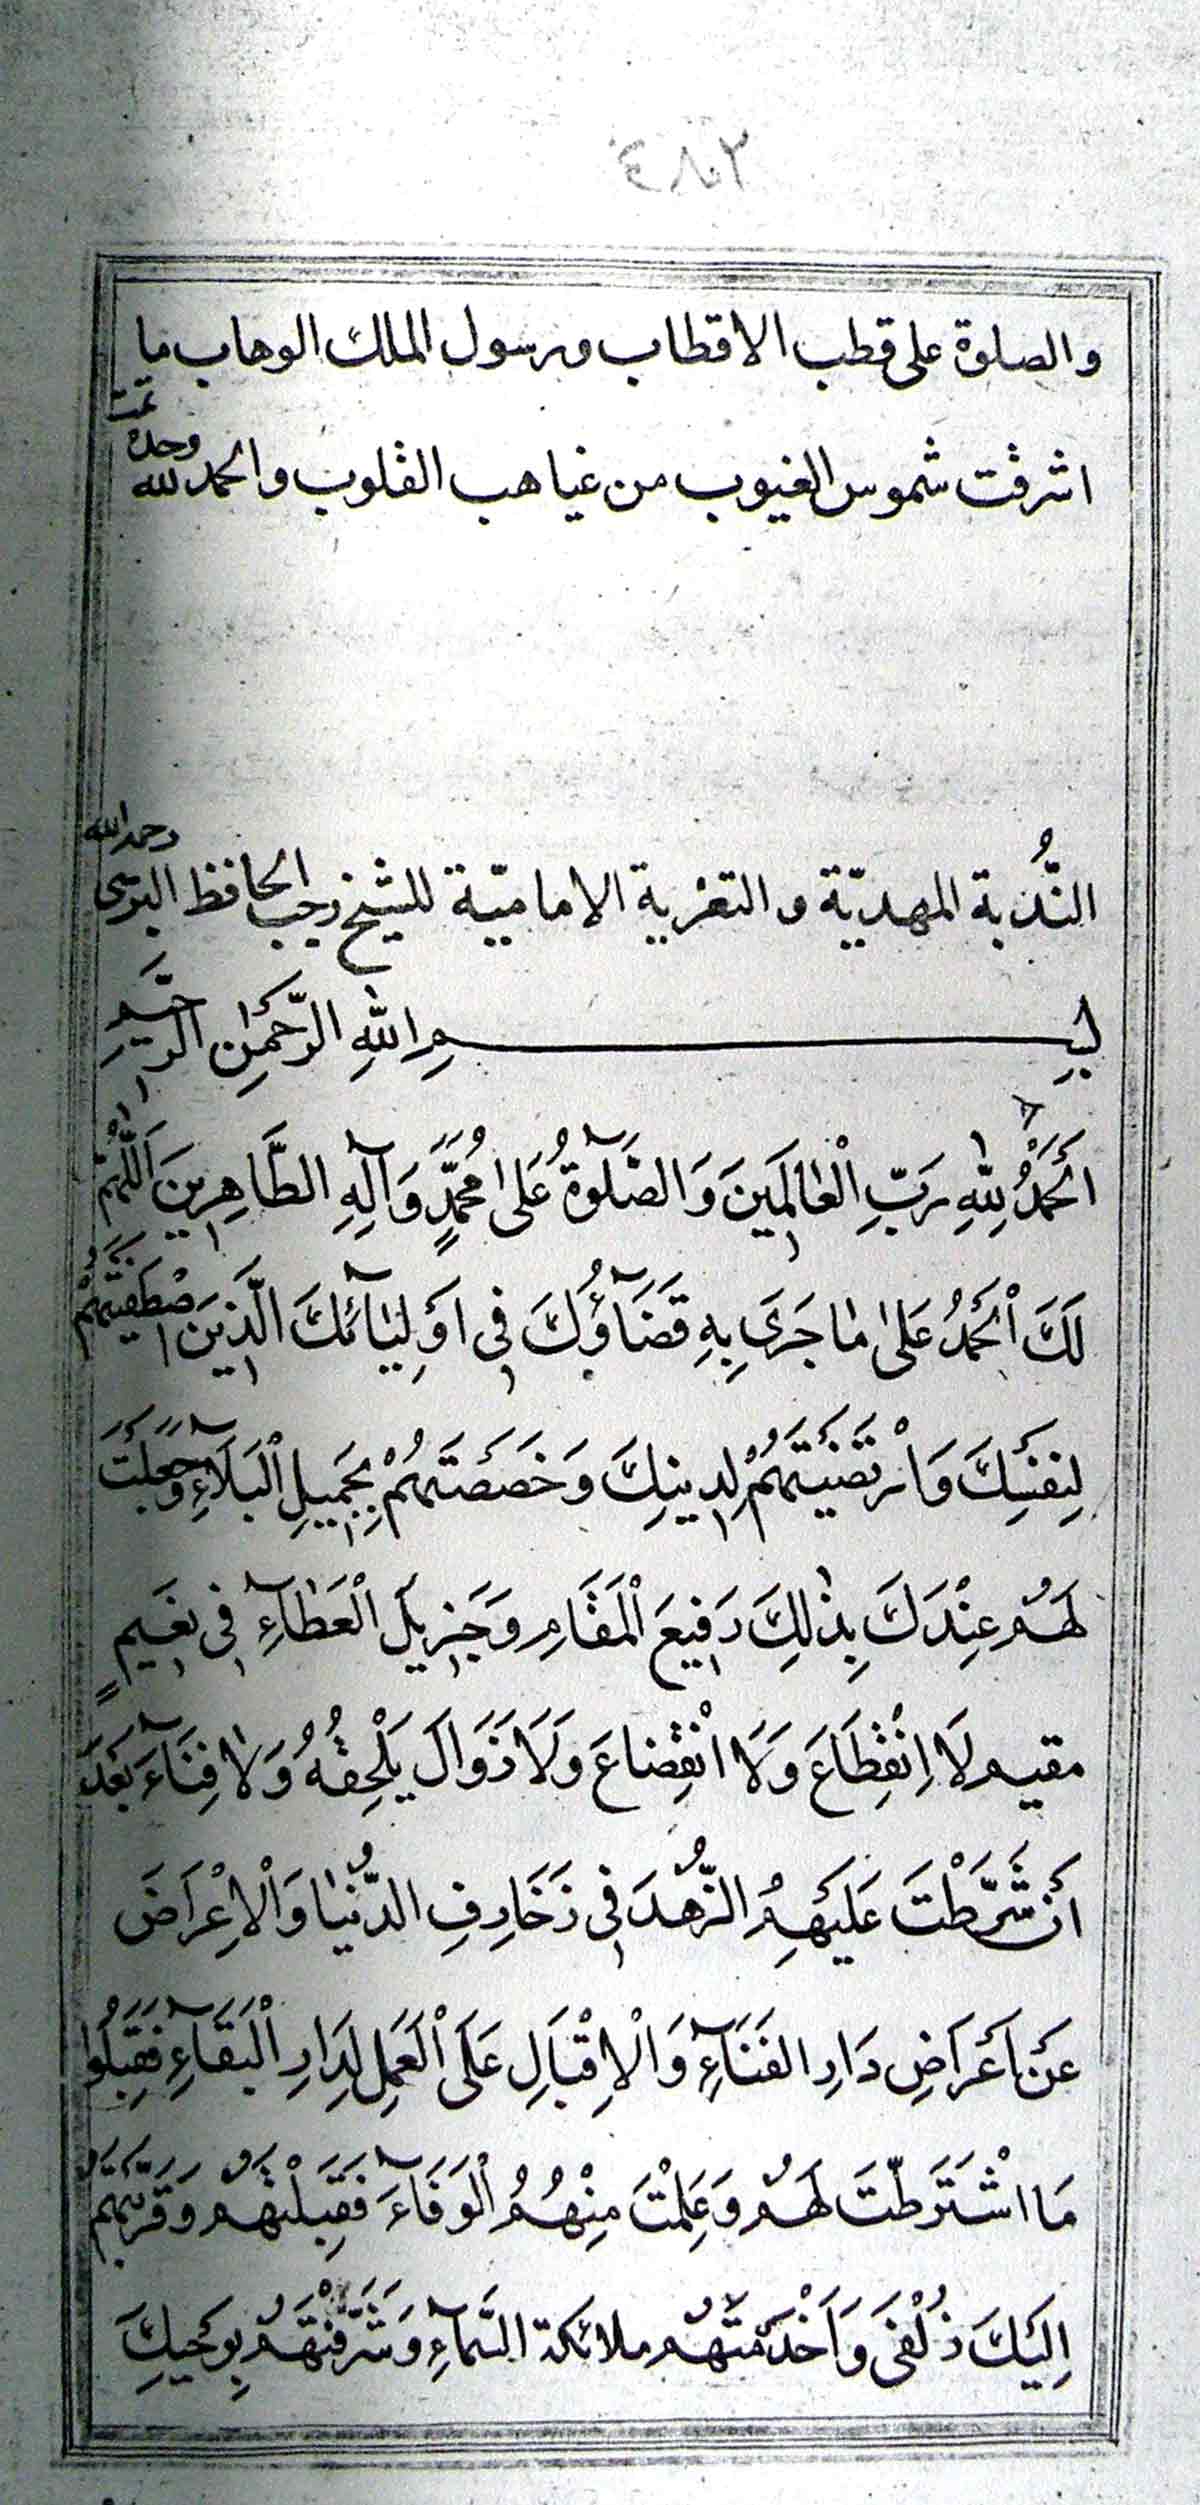 ٣٨٠٤
والصلوة على قطب الاقطاب ورسول الملك الوهاب ما
اشرقت شموس الغيوب من غياهب القلوب والحمد لله وحده تمت
النُّدبة المهديّة والتعزية الاماميّة للشيخ رجب الحافظ البرسى رحمه الله
بسم اللهِ الرَّحمٰنِ الرَّحيمِ
اَلْحَمْدُ لِلّٰهِ رَبِّ الْعٰالَمينَ وَالصَّلٰوةُ عَلىٰ مُحَمَّدٍ وَآلِهِ الطَّاهِرينَ اَللّٰهُمَّ
لَكَ الْحَمْدُ عَلىٰ مٰا جَرَى بِهِ قَضَآؤُكَ فى اَوْلِيٰائِكَ الَّذينَ اصْطَفَيْتَهُمْ
لِنَفْسِكَ وَارْتَضَيْتَهُمْ لِدينِكَ وَخَصَصْتَهُمْ بِجَميلِ الْبَلَآءِ وَجَعَلْتَ
لَهُمْ عِنْدَكَ بِذٰلِكَ رَفيعَ الْمَقَامِ وَجَزيلَ الْعَطٰآءِ فى نعيمٍ
مقيم لَا اِنْقِطَاعَ وَلَا انْقِضٰاعَ وَلَا زَوَالَ يَلْحِقُهُ وَلَا فِنَآءَ بَعْدَ
اَنْ شَرَّطْتَ عَلَيْهِمُ الزُّهْدَ فى زَخَارِفِ الدُّنْيٰا وَالْاِعْرَاضَ
عَنْ اَعْرَاضِ دَارِ الفَنَآءِ وَالْاِقْبَالِ عَلَى الْعَمَلِ لِدَارِ الْبَقَآءِ فَقَبِلُوا
مَا اشْتَرَطْتَ لَهُمْ وَعَلِمْتَ مِنْهُمُ الْوَفَآءَ فَقَبِلْتَهُمْ وَقَرَّبْتَهُمْ
اِلَيْكَ زُلْفَى وَاَخْدَمْتَهُمْ ملائكة السَّمآءِ وَشَرَّفْتَهُمْ بِوَحْيِكَ